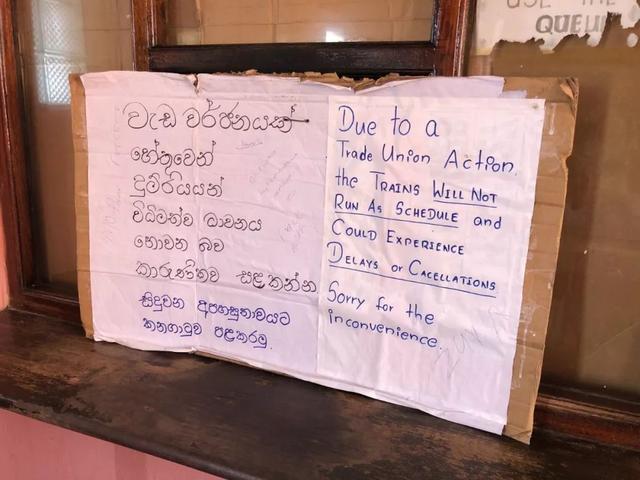 USE THE
QUEUE
වැඩ වර්ජනයක්
හේතුවෙන්
දුම්රියයන්
විධිමත්ව ධාවනය
නොවන බව
කාරුණිකව සළකන්න
සිදුවන අපහසුතාවයට
කනගාටුව පළකරමු.
Due to a
Trade Union Action,
the TRAINS WILL NOT
RUN AS SCHEDULE and
COULD EXPERIENCE
DELAYS or CACELLATIONS
Sorry for the
inconvenience.